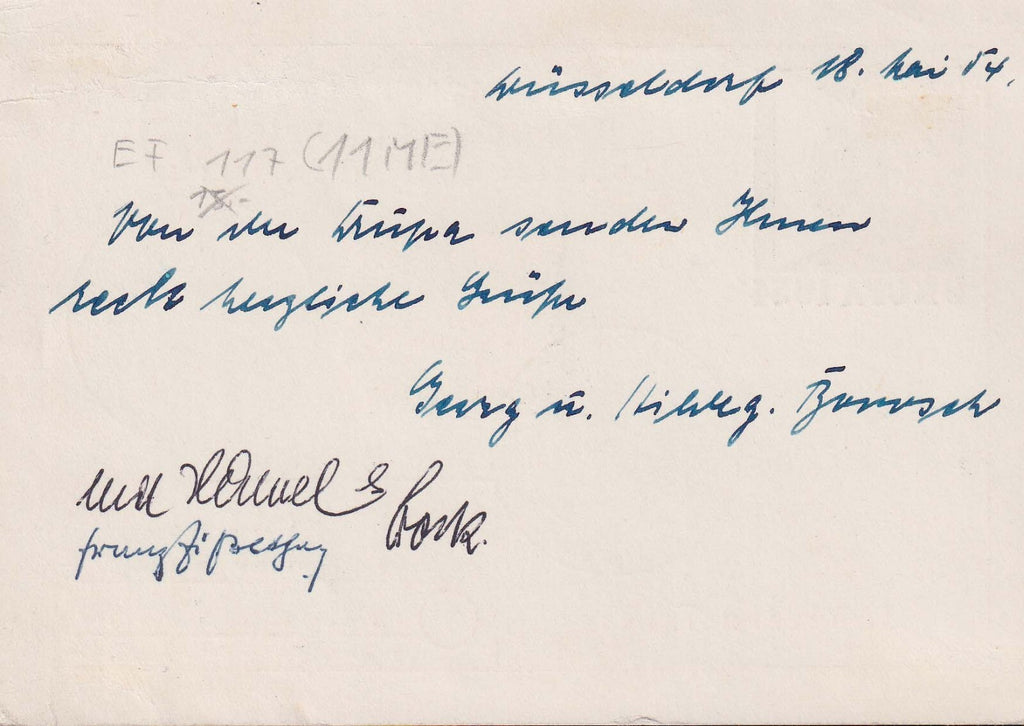 Düsseldorf 18. Mai 54.
EF 117 (11 ME)
Von der Drupa senden Ihnen
recht herzliche Grüße
Georg u. Hildeg. Borosch
und
Franz